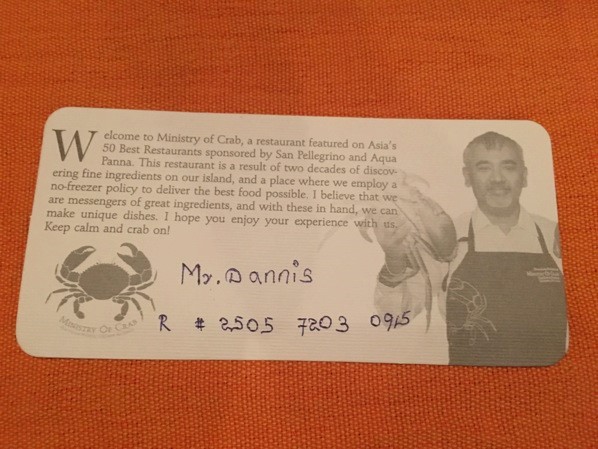 Welcome to Ministry of Crab, a restaurant featured on Asia's
50 Best Restaurants sponsored by San Pellegrino and Aqua
Panna. This restaurant is a result of two decades of discov-
ering fine ingredients on our island, and a place where we employ a
no-freezer policy to deliver the best food possible. I believe that we
are messengers of great ingredients, and with these in hand, we can
make unique dishes. I hope you enjoy your experience with us.
Keep calm and crab on!
Mr. Dannis
MINISTRY OF CRAB
R # 2505 7203 0915